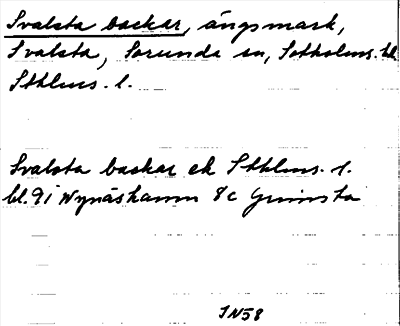 Svalsta backar, ängsmark,
Svalsta, Sorunda sn, Sotholms hd
Sthlms. l.
Svalsta backar ek Sthlms. l.
bl. 9i Nynäshamn 8c Grimsta
IN58